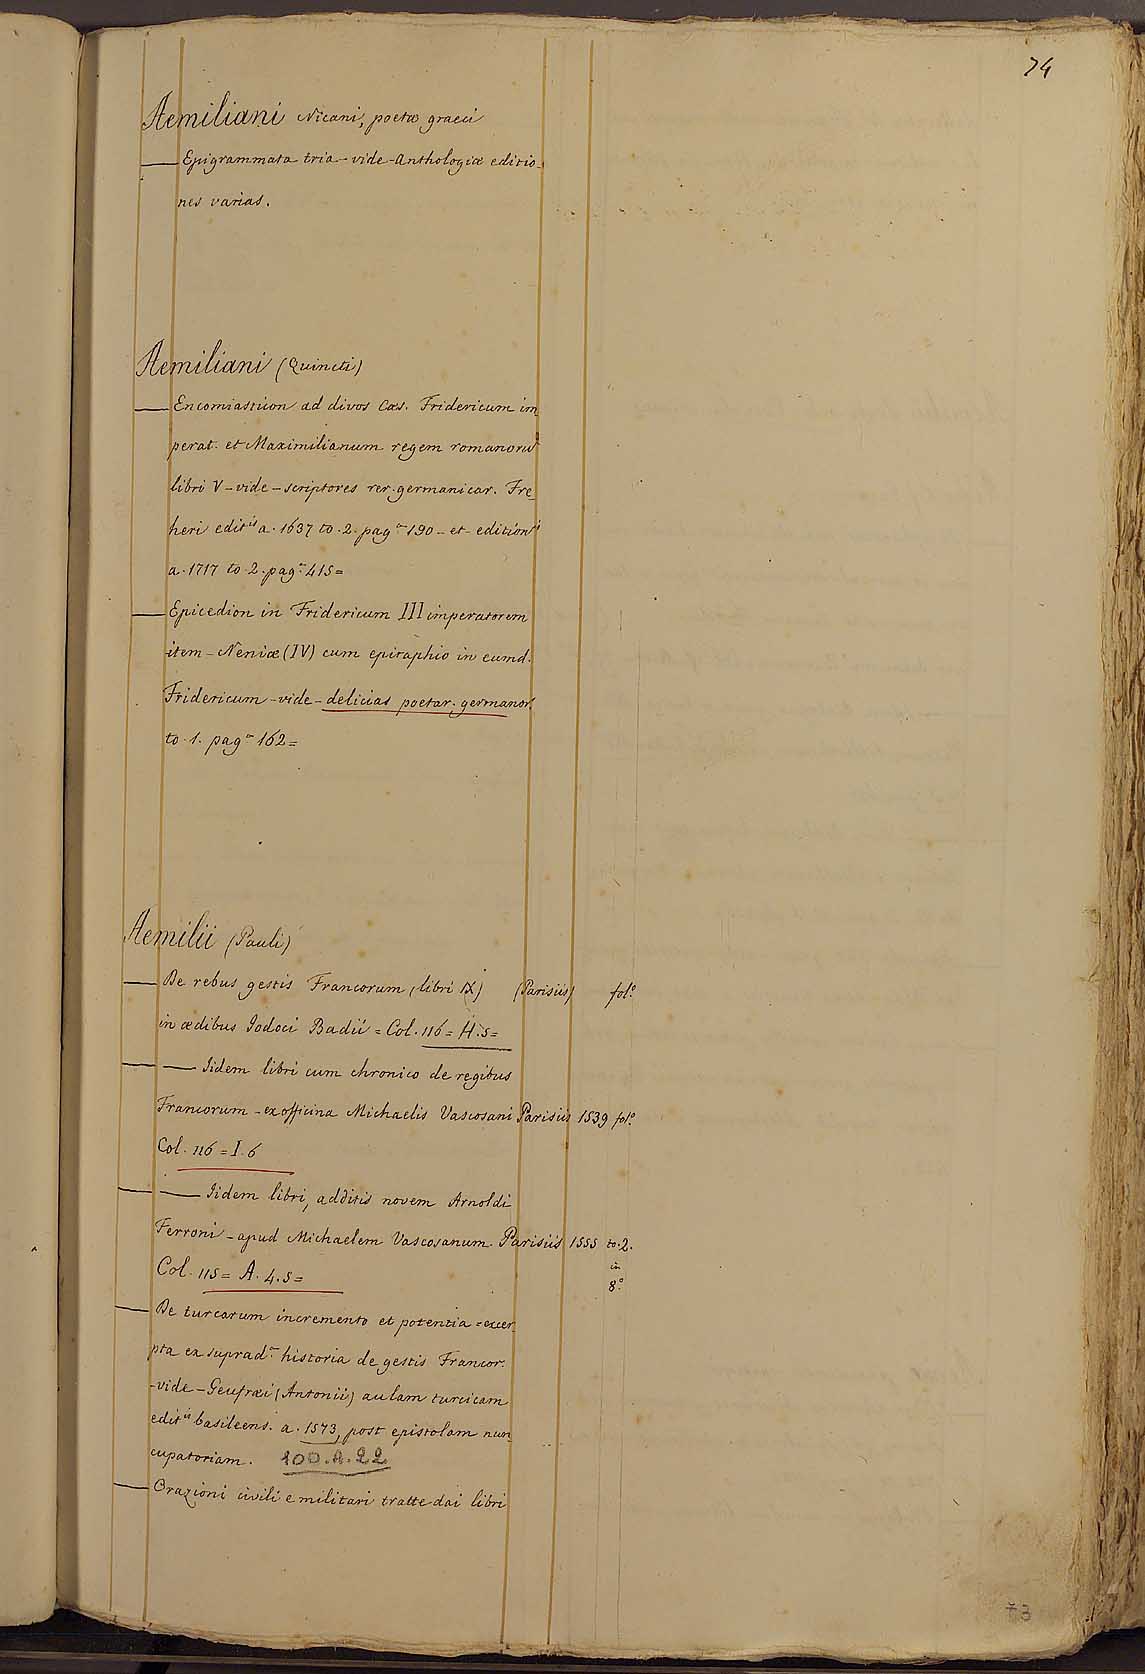 74
Aemiliani Nicani, poetæ graeci
— Epigrammata tria - vide - Anthologiæ editio-
nes varias.
Aemiliani (Quincti)
— Encomiasticon ad divos Cæs. Fridericum im-
perat. et Maximilianum regem romanorū
libri V - vide - scriptores rer. germanicar. Fre-
heri editis a. 1637 to. 2. pag.a 190 - et editioni
a. 1717 to. 2. pag.a 415 =
— Epicedion in Fridericum III imperatorem
item - Neniæ (IV) cum epitaphio in eumd.
Fridericum - vide - delicias poetar. germanor.
to. 1. pag.a 162 =
Aemilii (Pauli)
— De rebus gestis Francorum, (libri IX) (Parisiis) fol.o
in ædibus Jodoci Badii = Col. 116 = H. 5 =
— — Iidem libri cum chronico de regibus
Francorum - ex officina Michaelis Vascosani Parisiis 1539 fol.o
Col. 116 = I. 6
— — Iidem libri, additis novem Arnoldi
Ferroni - apud Michaelem Vascosanum. Parisiis 1555 to. 2.
in
8.o
Col. 115 = A. 4. 5 =
— De turcarum incremento et potentia = excer-
pta ex suprad.a historia de gestis Francor.
- vide - Geufræi (Antonii) aulam turcicam
editis basileens. a. 1573, post epistolam nun-
cupatoriam. 100. A. 22
— Orazioni civili e militari tratte dai libri
73